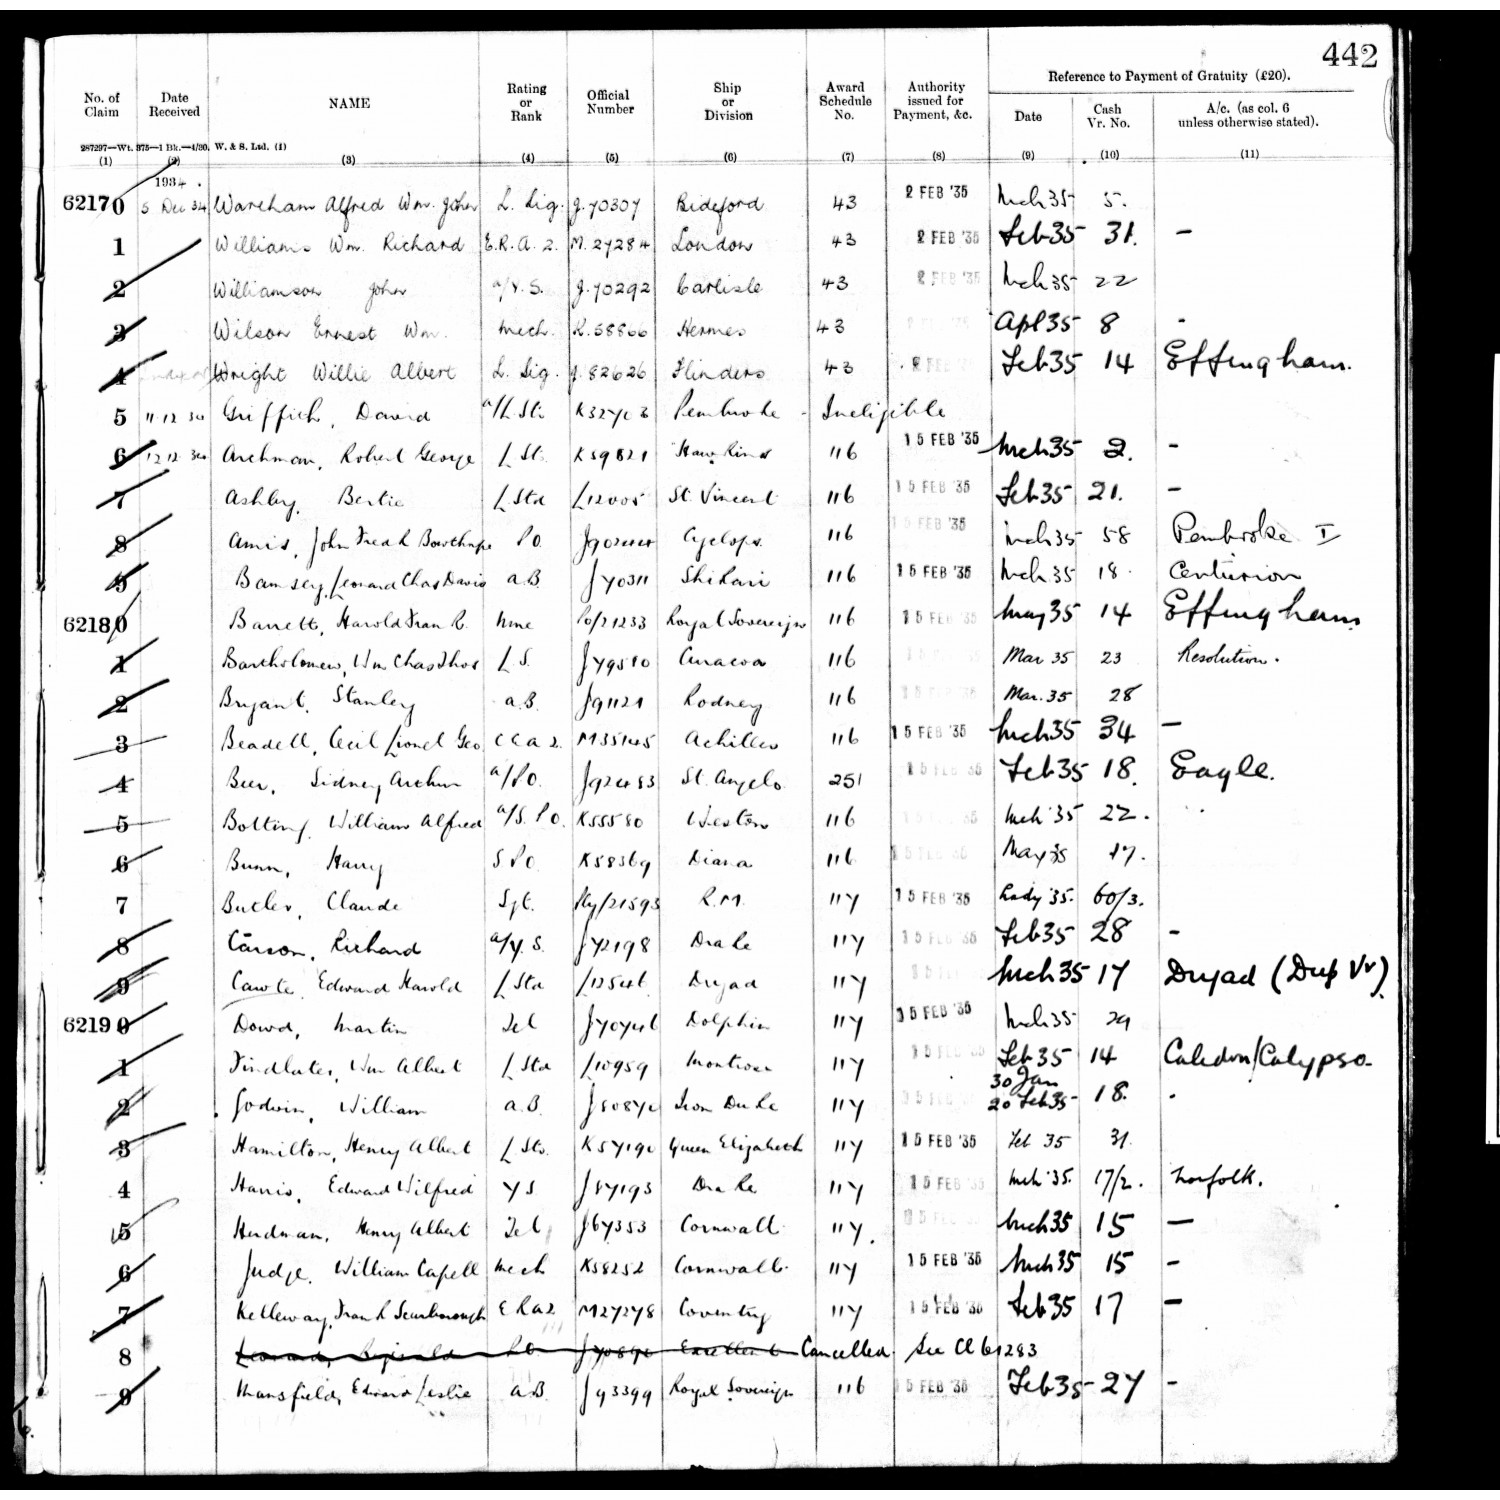 442
No. of Claim Date Received NAME Rating or Rank Official Number Ship or Division Award Schedule No. Authority issued for Payment, &c. Reference to Payment of Gratuity (£20).
Date Cash Vr. No. A/c. (as col. 6 unless otherwise stated).
287297—Wt. 375—1 Bk.—4/30. W. & S. Ltd. (1)
(1) (2) (3) (4) (5) (6) (7) (8) (9) (10) (11)
1934.
62170 5 Dec 34 Wareham Alfred Wm. John L. Sig. J.70307 Bideford 43 2 FEB '35 Mch 35 5.
1 Williams Wm. Richard E.R.A. 2. M.27284 London 43 2 FEB '35 Feb 35 31. -
2 Williamson John a/Y.S. J.70292 Carlisle 43 2 FEB '35 Mch 35 22
3 Wilson Ernest Wm. Mech. K.58866 Hermes 43 Apl 35 8 -
4 Wright Willie Albert L. Sig. J.82626 Flinders 43 2 FEB Feb 35 14 Effingham.
5 11.12.34 Griffith, David a/L.Sto. K32703 Pembroke - Ineligible
6 12.12.34 Archman, Robert George L Sto. K59821 Hawkins 116 15 FEB '35 Mch 35 2. -
7 Ashby, Bertie L Std L12005 St. Vincent 116 15 FEB '35 Feb 35 21. -
8 Amis, John Fredk Bowthorpe P.O. Cyclops 116 15 FEB '35 Mch 35 58 Pembroke I
9 Bamsey, Leonard Chas Davis A.B. J70311 Shikari 116 15 FEB '35 Mch 35 18. Centurion
62180 Barrett, Harold Frank. Mne Po/21233 Royal Sovereign 116 15 FEB '35 May 35 14 Effingham
1 Bartholomew, Wm Chas Thos L.S. J79580 Curacoa 116 Mar 35 23 Resolution.
2 Bryant, Stanley A.B. J91121 Rodney 116 15 FEB '35 Mar. 35 28
3 Beadell, Cecil Lionel Geo. M35145 Achilles 116 15 FEB '35 Mch 35 34 —
4 Beer, Sidney Arthur a/P.O. J92483 St. Angelo 251 15 FEB '35 Feb 35 18. Eagle.
5 Botting, William Alfred a/S.P.O. K55580 Weston 116 Mch '35 22.
6 Bunn, Harry S.P.O. K58369 Diana 116 15 FEB '35 May 35 17.
7 Butler, Claude Sgt. Ply/21593 R.M. 117 15 FEB '35 Lady '35. 60/3.
8 Carson, Richard a/Y.S. J72198 Drake 117 15 FEB '35 Feb 35 28 -
9 Cawte, Edward Harold L Std L12546 Dryad 117 15 FEB Mch 35 17 Dryad (Dup Vr).
62190 Dowd, Martin Tel J70746 Dolphin 117 15 FEB '35 Mch 35 29
1 Findlater, Wm Albert L Std L10959 Montrose 117 15 FEB '35 Feb 35 14 Caledon/Calypso.
2 Godwin, William A.B. Iron Duke 117 15 FEB 30 Jan 20 Feb 35 18. -
3 Hamilton, Henry Albert L Sto. K57190 Queen Elizabeth 117 15 FEB '35 Feb 35 31.
4 Harris, Edward Wilfred Y.S. J87193 Drake 117 15 FEB '35 Mch '35. 17/2. Norfolk.
5 Herdman, Henry Albert Tel J67353 Cornwall 117. 15 FEB '35 Mch 35 15 —
6 Judge, William Capell Mech K58252 Cornwall 117 15 FEB '35 Mch 35 15 -
7 Kelleway, Frank Scarborough E.R.A 2. M27278 Coventry 117 15 FEB '35 Feb 35 17 —
8 Leonard, Reginald P.O. Excellent Cancelled. See Cl 61283
9 Mansfield, Edward Leslie A.B. J93399 Royal Sovereign 116 15 FEB '35 Feb 35 27 -